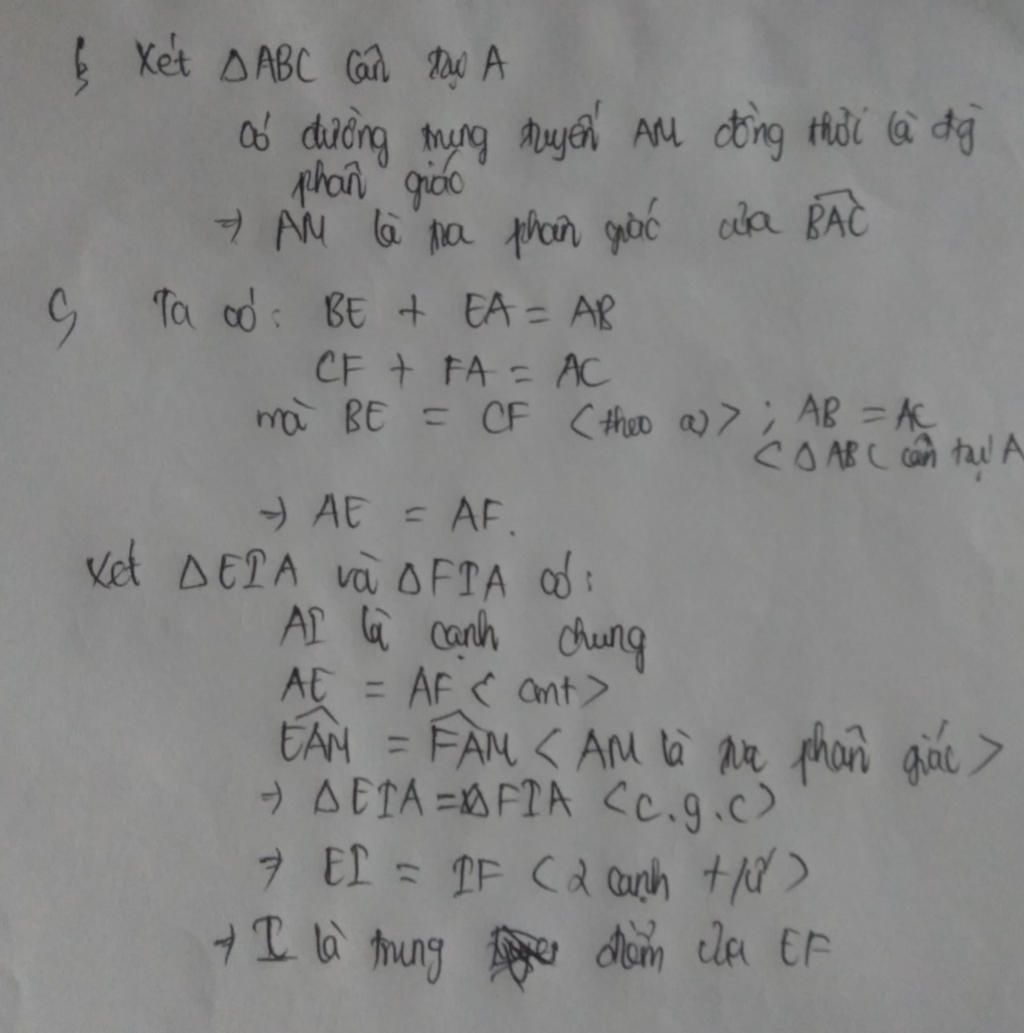 b, Xét ΔABC cân tại A
có đường trung tuyến AM đồng thời là đg
phân giác
→ AM là tia phân giác của \widehat{BAC}
c, Ta có: BE + EA = AB
CF + FA = AC
mà BE = CF <theo a)> ; AB = AC
<ΔABC cân tại A
→ AE = AF.
Xét ΔEIA và ΔFIA có:
AI là cạnh chung
AE = AF < cmt >
\widehat{EAM} = \widehat{FAM} < AM là tia phân giác >
→ ΔEIA = ΔFIA <c.g.c>
→ EI = IF <2 cạnh t/ứ>
→ I là trung điểm của EF